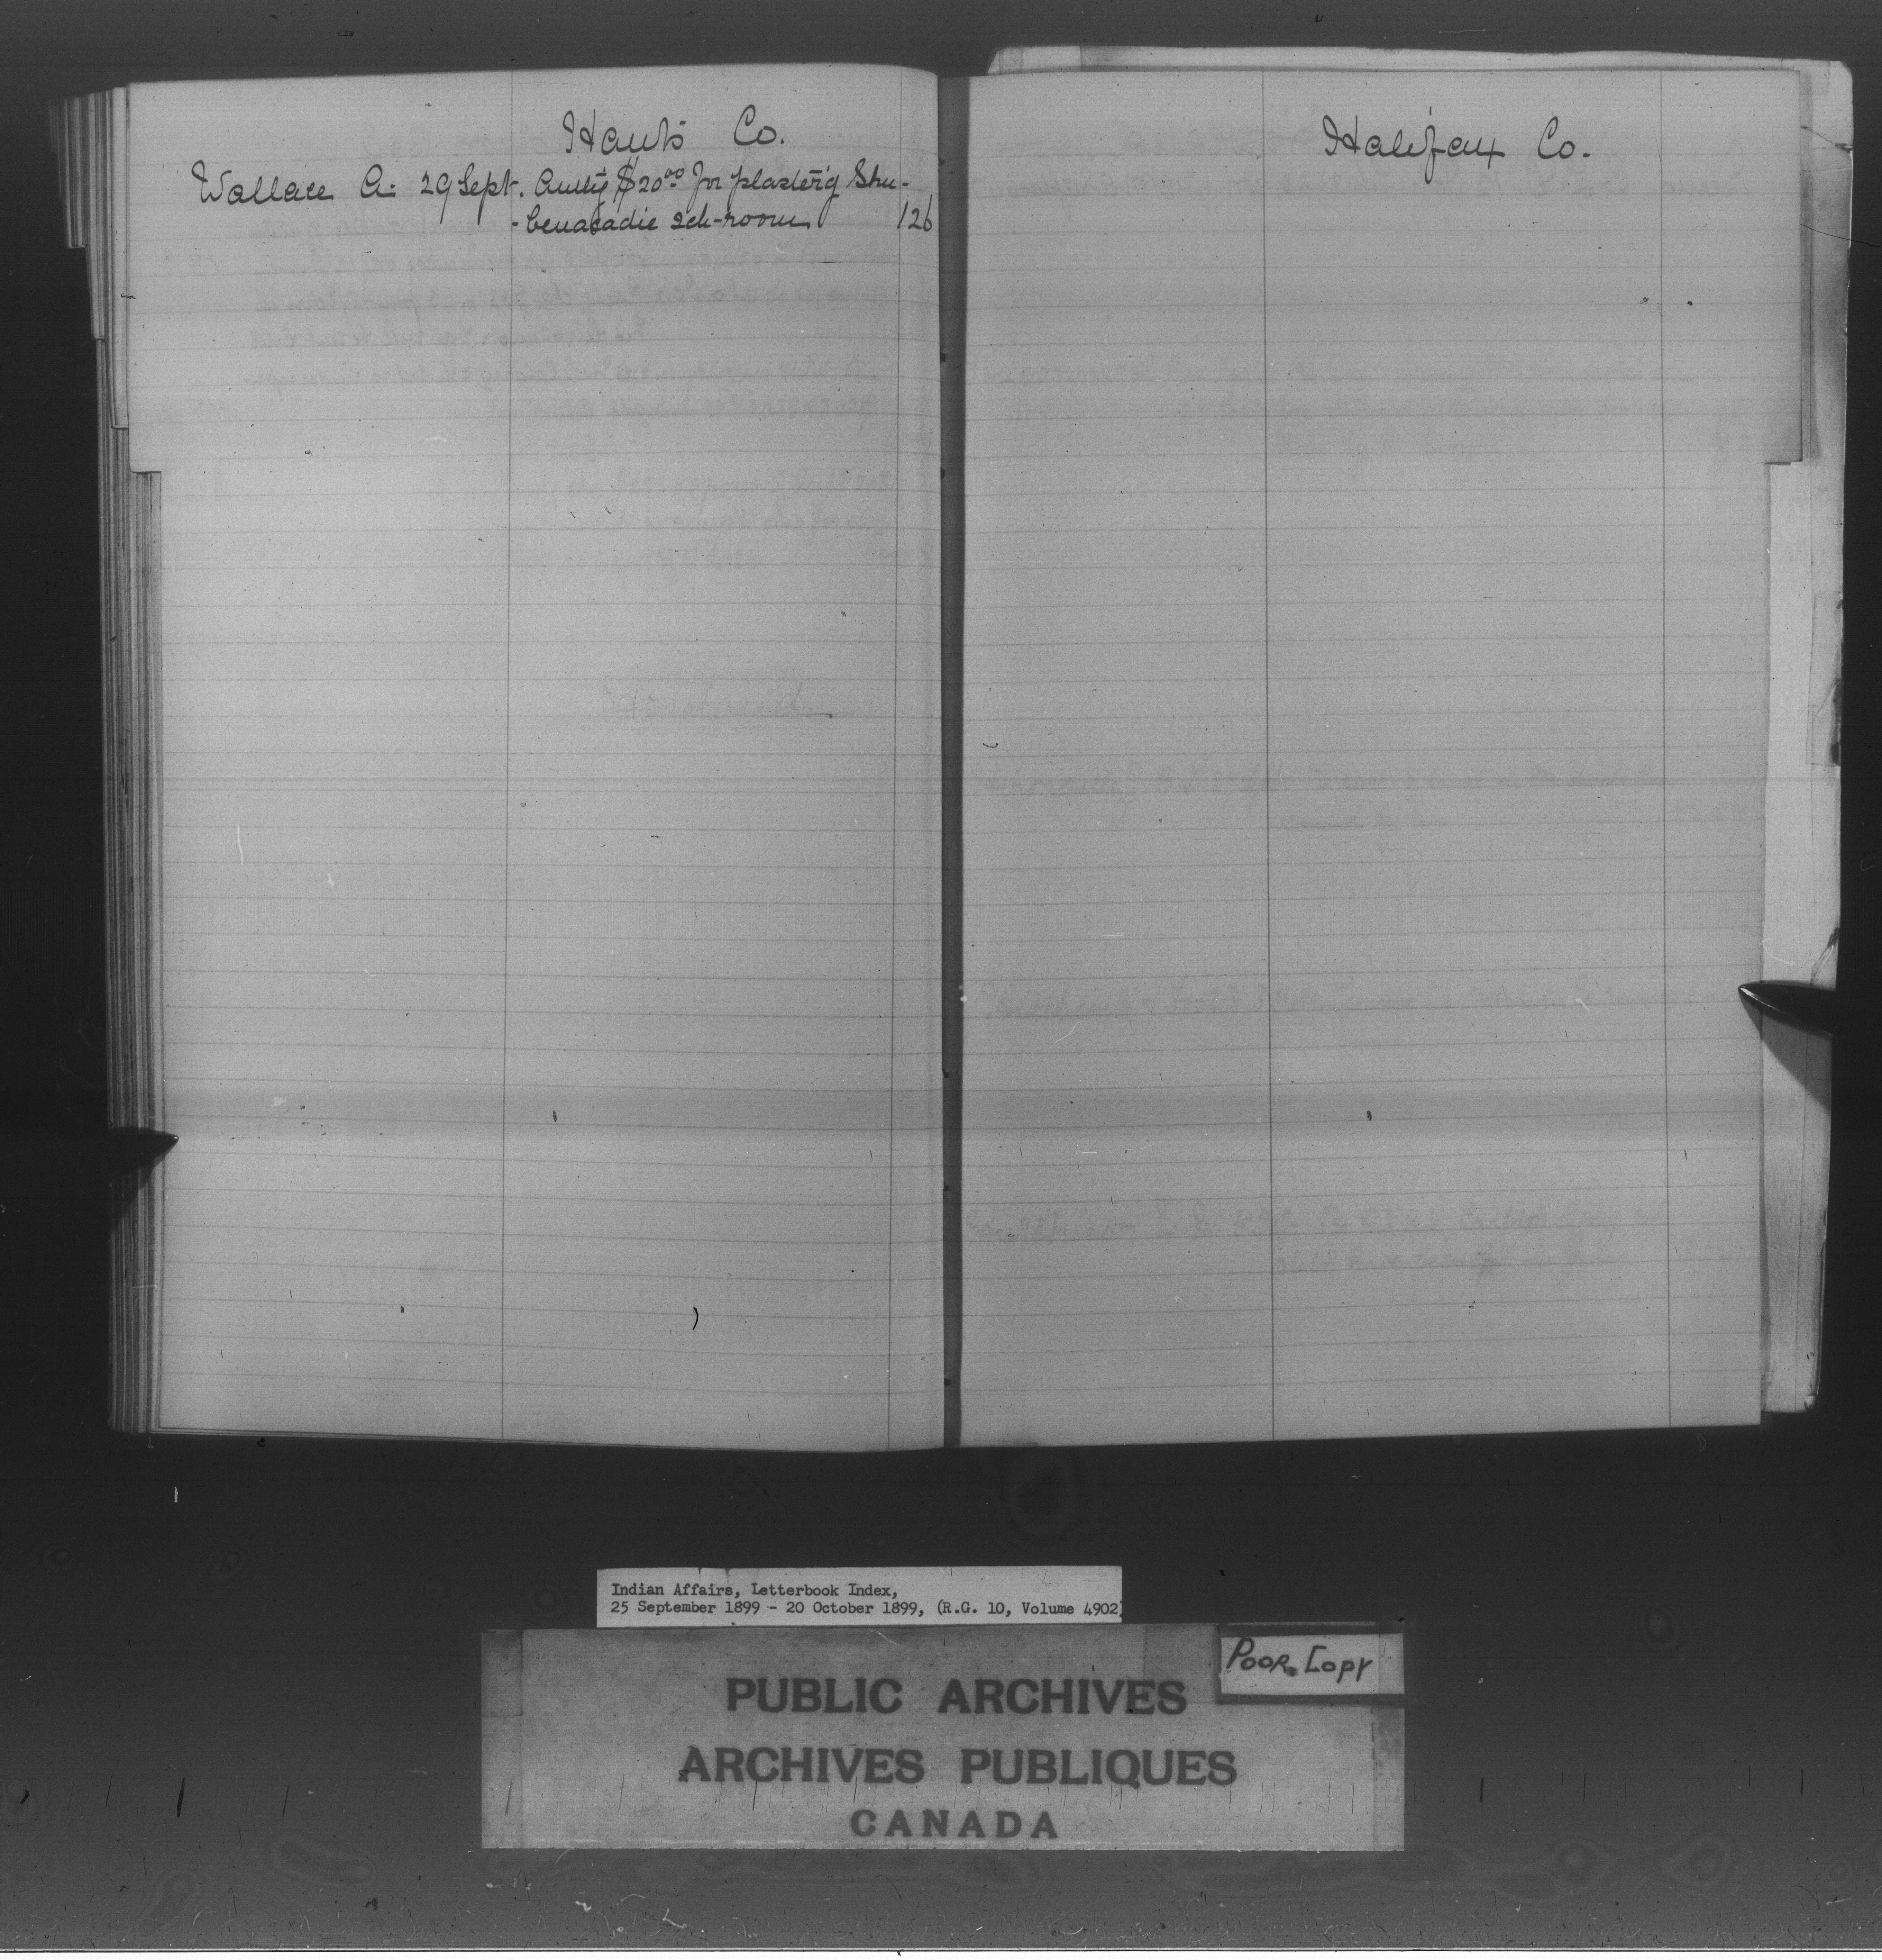 Hants Co.
Wallace A. 29 Sept. Auth'g $20.00 for plaster'g Shu-
-benacadie sch-room 126
Halifax Co.
Indian Affairs, Letterbook Index,
25 September 1899 - 20 October 1899, (R.G. 10, Volume 4902)
POOR COPY
PUBLIC ARCHIVES
ARCHIVES PUBLIQUES
CANADA